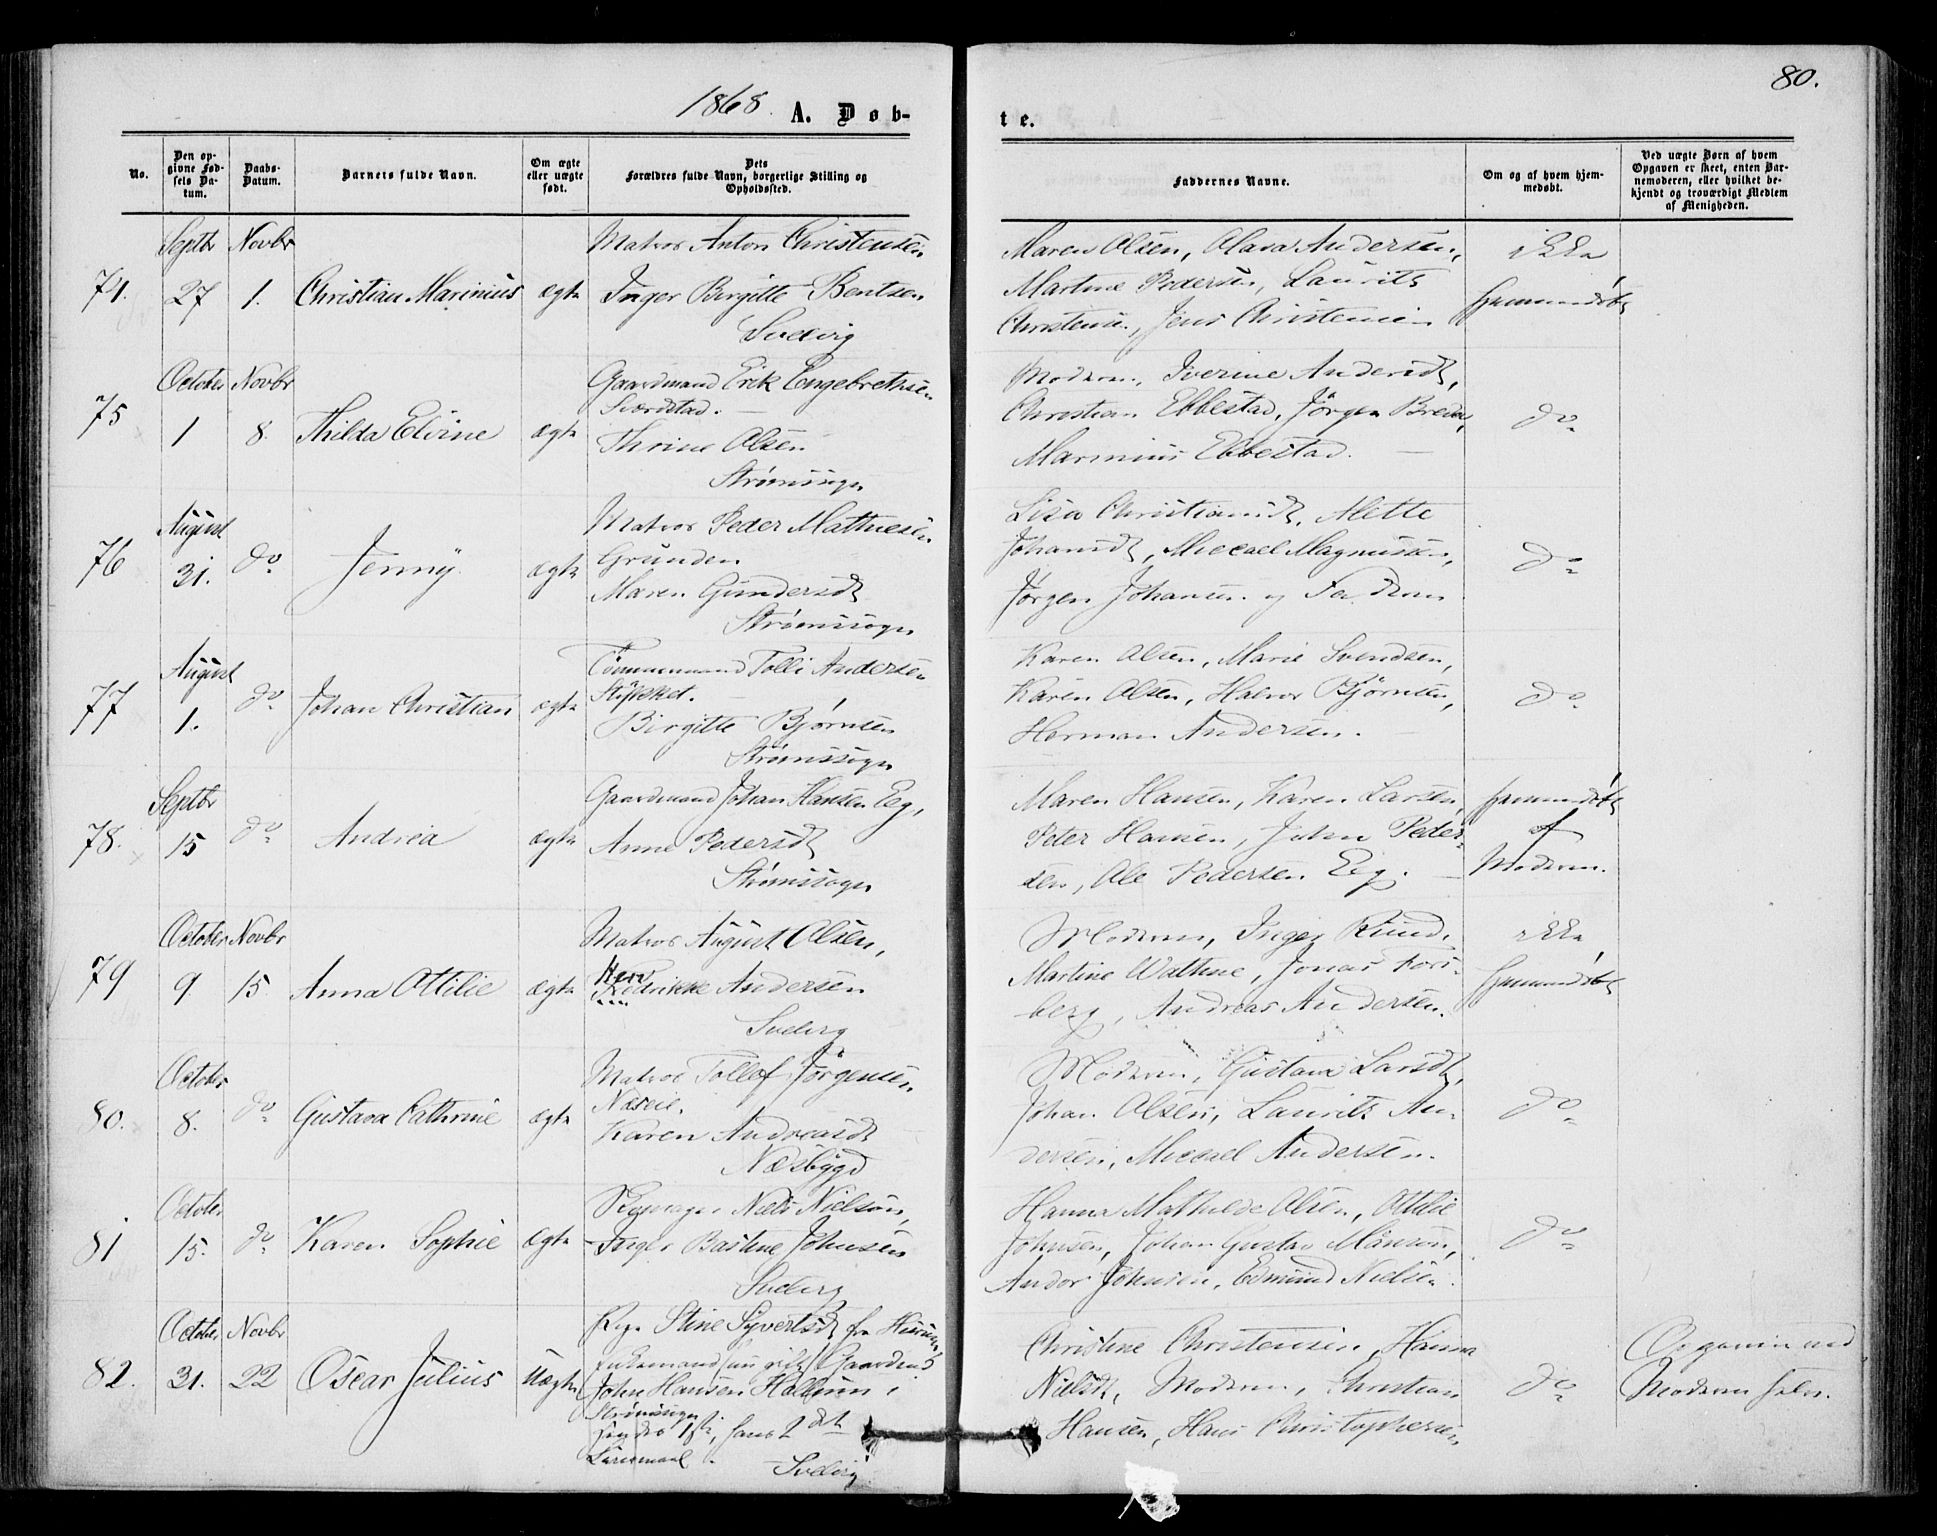 80.
1868. A. Døb-
te.
No.
Den op-
givne Fød-
sels Da-
tum.
Daabs-
Datum.
Barnets fulde Navn.
Om ægte
eller uægte
født.
Dets
Forældres fulde Navn, borgerlige Stilling og
Opholdssted.
Faddernes Navne.
Om og af hvem hjem-
medøbt.
Ved uægte Børn af hvem
Opgaven er skeet, enten Bar-
nemoderen, eller hvilket be-
kjendt og troværdigt Medlem
af Menigheden.
74.
Septbr
27
Novbr
1.
Christian Marinius
ægte
Matros Anton Christensen,
Inger Birgitte Bentsen
Svelvig
Maren Olsen, Olava Andersen,
Martine Pedersen, Laurits
Christensen, Jens Christensen
ikke
hjemmedøbt
75
October
1
Novbr
8.
Thilda Elvine
ægte
Gaardmand Erik Engebrethsen
Sværdstad.
Thrine Olsen
Strømssogn
Moderen, Iverine Andersdt,
Christian Ebbestad, Jörgen
Marinius Ebbestad.
do
76
August
31.
do
Jenny
ægte
Matros Peder Mathiesen
Grunden
Maren Gundersdt
Strømssogn
Lisa Christiansdt, Alette
Johansdt, Micael Magnussen,
Jörgen Johansen og Faderen
do
77
August
1.
do
Johan Christian
ægte
Tömmermand Tolli Andersen
Birgitte Bjørnsen
Strømssogn
Karen Olsen, Marie Svendsen,
Karen Olsen, Halvor Bjørnsen,
Herman Andersen.
do
78.
Septbr
15
do
Andrea
ægte
Gaardmand Johan Hansen Eeg,
Anne Pedersdt
Strømssogn
Maren Hansen, Karen Larsen,
Peter Hansen, Johan Peder-
sen, Ole Pedersen Eeg.
hjemmedøbt
af
Moderen.
79
October
9.
Novbr
15.
Anna Ottilie
ægte
Matros August Olsen,
Hen
Fredrikke Andersen
Svelvig
Moderen, Inger Ruud,
Martine Wathne, Jonas Fors-
berg, Andreas Andersen.
ikke
hjemmedøbt
80.
October
8.
do
Gustava Cathrine
ægte
Matros Tollef Jörgensen,
Karen Andreasdt
Næsbygd
Moderen, Gustava Larsdt,
Johan Olsen, Laurits An-
dersen, Micael Andersen.
do
81
October
15.
do
Karen Sophie
Ægte
Niels Nielsen,
Inger Bastine Johnsen
Svelvig
Hanna Mathilde Olsen, Ottilie
Johnsen, Johan Gustav Månson,
Andor Johnsen, Edmund Nielsen.
do
82.
October
31.
Novbr
22
Oscar Julius
Uægte
Pige Stine Syvertsdt fra
Enkemand (nu gift) Gaardmd
John Hansen i
Strømssogn
hendes 1ste, hans 2det
Leiermaal.
Svelvig
Christine Christensen, Hanna
Nielsdt, Moderen, Christian
Hansen, Hans Christophersen,
do
Opgaven ved
Moderen selv.